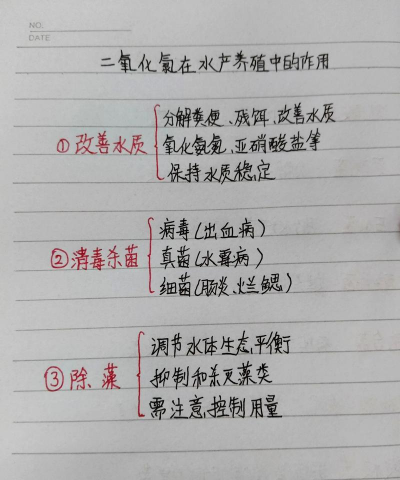 NO.
DATE
二氧化氯在水产养殖中的作用
分解粪便、残饵、改善水质
①改善水质
氧化氨氮、亚硝酸盐等
保持水质稳定
病毒(出血病)
②消毒杀菌
真菌(水霉病)
细菌(肠炎、烂鳃)
调节水体生态平衡
③除藻
抑制和杀灭藻类
需注意控制用量